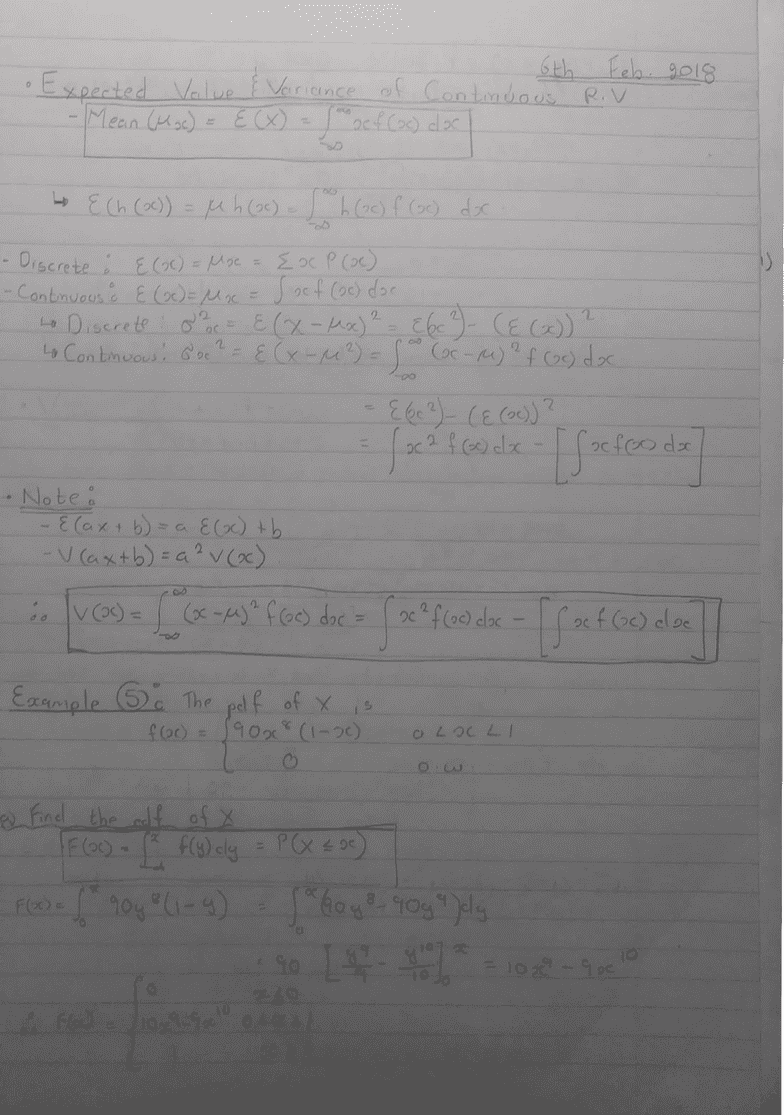 6th Feb. 2018
• Expected Value & Variance of Continuous R.V
- Mean (μx) = E(X) = ∫_{-∞}^{∞} x f(x) dx
↳ E(h(x)) = μ h(x) = ∫_{-∞}^{∞} h(x) f(x) dx
- Discrete : E(x) = μx = Σ x P(x)
- Continuous : E(x) = μx = ∫ x f(x) dx
↳ Discrete : σ²x = E(X - μx)² = E(x²) - (E(x))²
↳ Continuous : σx² = E(x - μ²) = ∫_{-∞}^{∞} (x - μ)² f(x) dx
= E(x²) - (E(x))²
= ∫ x² f(x) dx - [∫ x f(x) dx]
• Note :
- E(ax + b) = a E(x) + b
- V(ax+b) = a² V(x)
∴ V(x) = ∫_{-∞}^{∞} (x - μ)² f(x) dx = ∫ x² f(x) dx - [∫ x f(x) dx]
Example (5) : The pdf of X is
f(x) = { 90x⁸ (1-x) 0 < x < 1
0 o.w.
Find the cdf of X
F(x) = ∫ f(y) dy = P(X ≤ x)
F(x) = ∫_0^x 90y⁸ (1-y) = ∫_0^x (90y⁸ - 90y⁹) dy
= 90 [y⁹/9 - y¹⁰/10]_0^x = 10x⁹ - 9x¹⁰
∴ F(x) = { 0 x ≤ 0
10x⁹ - 9x¹⁰
1